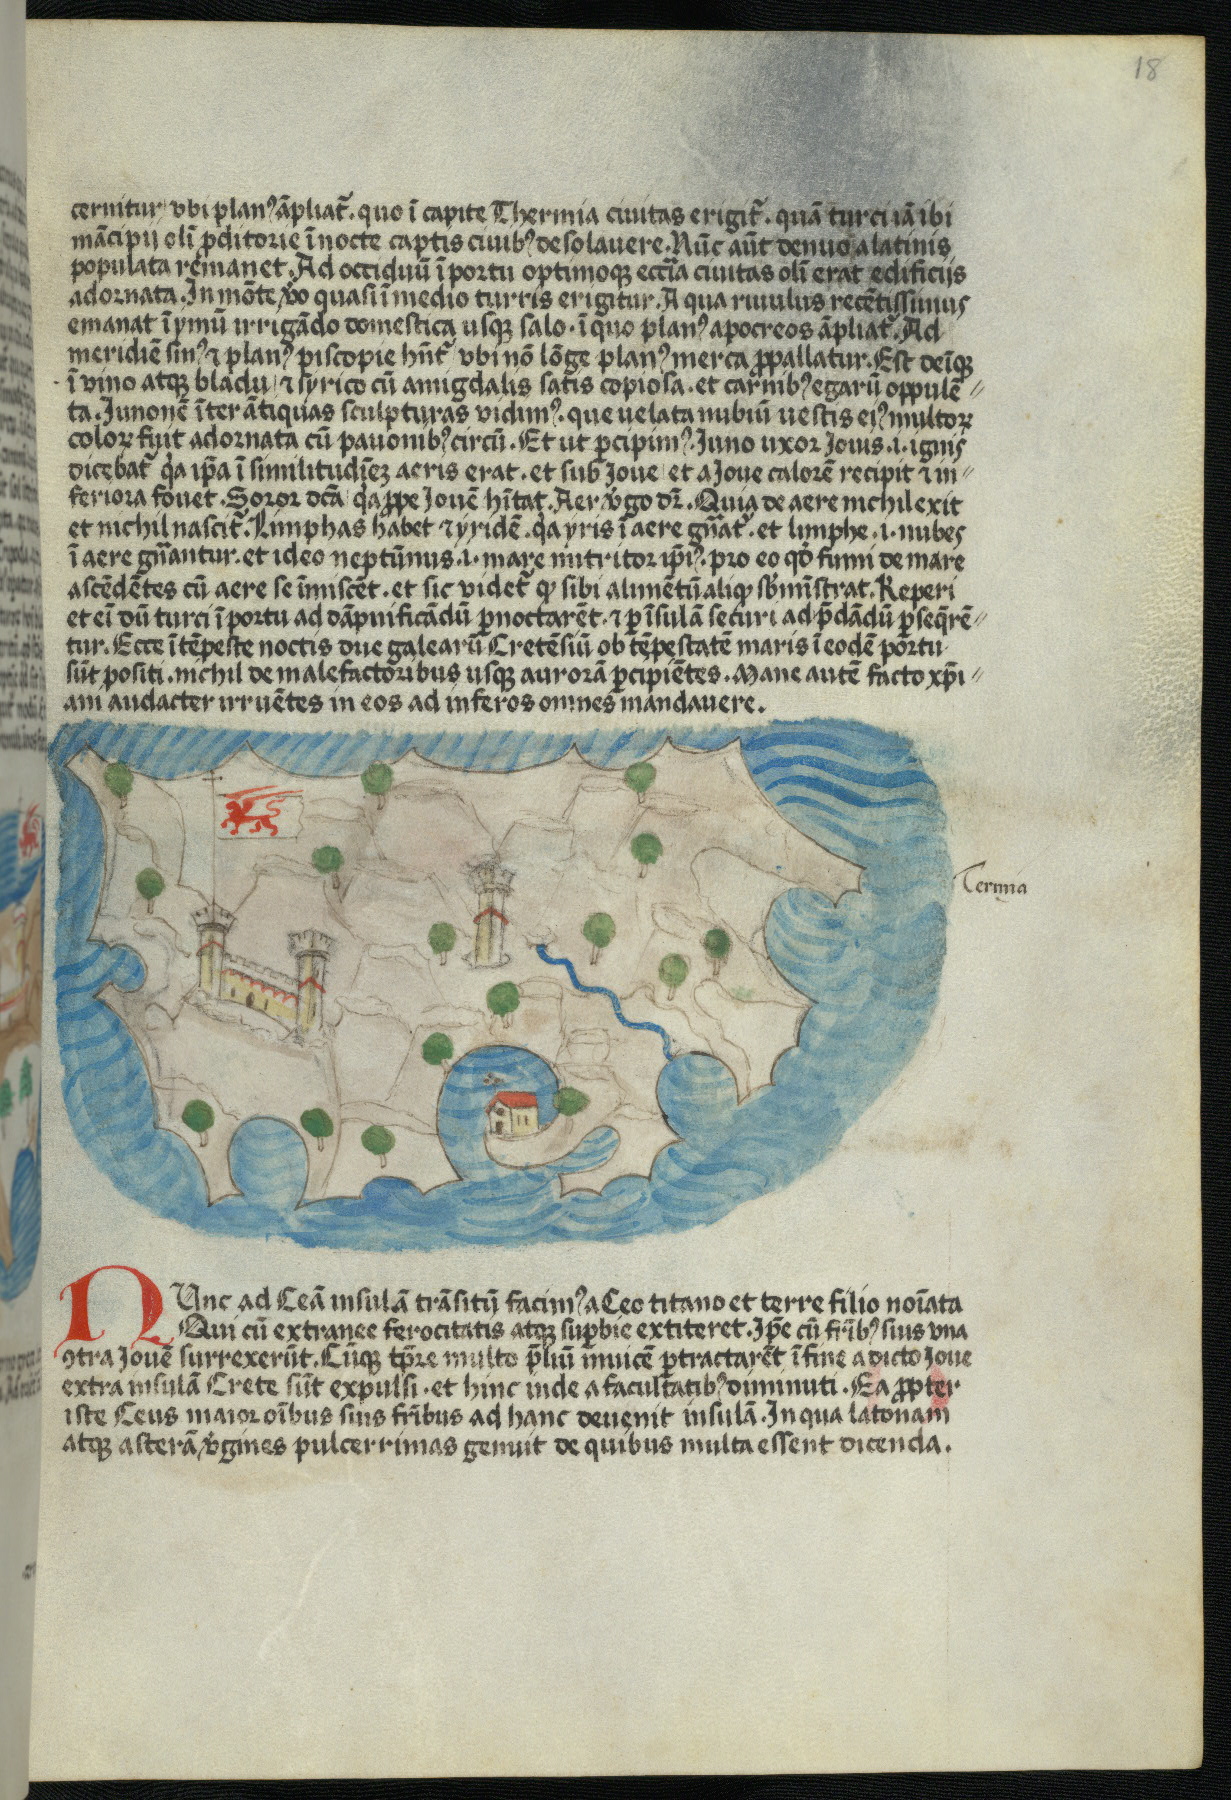 18
cernitur vbi planꝰ āpliat᷑. quo ī capite Thermia ciuitas erigit᷑. quā turci iā ibi
mācipij oli ꝓditorie ī nocte captis ciuibꝰ desolauere. Nūc aūt denuo a latinis
populata remanet. Ad occiduū ī portu optimoqꝫ eccīa ciuitas oli erat edificijs
adornata. In mōte v̊o quasi ī medio turris erigitur. A qua riuulus recētissimus
emanat ī ymū irrigādo domestica usqꝫ salo. ī quo planꝰ apocreos āpliat᷑. Ad
meridiē sinꝰ ⁊ planꝰ piscopie hn̄t᷑ vbi nō lōge planꝰ merca ꝓpallatur. Est deīqꝫ
ī vino atqꝫ bladu ⁊ syrico cū amigdalis satis copiosa. et carnibꝰ egarū oppulē〃
ta. Junonē īter ātiquas sculpturas vidimꝰ. que uelata nubiū uestis eiꝰ multoꝝ
coloꝝ fuit adornata cū pauonibꝰ circū. Et ut ꝑcipimꝰ. Juno uxor Jouis .i. ignis
dicebat᷑ q̇a ip̄a ī similitudīeꝫ aeris erat. et sub Joue et a Joue calorē recipit ⁊ in〃
feriora fouet. Soror dc̄a q̇a ꝓpe Jouē hītat. Aer v̊go dr̄. Quia de aere nichil exit
et nichil nascit᷑. Limphas habet ⁊ yridē. q̇a yris ī aere gn̄at᷑. et limphe .i. nubes
ī aere gn̄antur. et ideo neptūnus .i. mare nutritor ip̄iꝰ. pro eo qď fumi de mare
ascēdētes cū aere se īmiscēt. et sic videt᷑ ꝙ sibi alimētū aliqꝫ sb̄mīstrat. Reperi
et eī dū turci ī portu ad dāpnificādū ꝑnoctarēt. ⁊ ꝑ īsulā securi ad p̄dādū ꝑseqrē〃
tur. Ecce ītēpeste noctis due galearū Cretēsiū ob tēpestatē maris ī eodē portu
sūt positi. nichil de malefactoribus usqꝫ aurorā ꝑcipiētes. Mane autē facto xp̄i〃
am audacter irruētes in eos ad inferos omnes mandauere.
Termia
NUnc ad Ceā insulā trāsitū facimꝰ a Ceo titano et terre filio noīata
Qui cū extranee ferocitatis atqꝫ suꝑbie extiteret. Ip̄e cū fr̄ibꝰ suis vna
ꝯtra Jouē surrexerūt. Cūqꝫ tp̄re multo p̄liū inuicē ꝑtractarēt ī fine a dicto Joue
extra insulā Crete sūt expulsi. et hinc inde a facultatibꝰ diminuti. Ea ꝓpter
iste Ceus maior oībus suis fr̄ibus ad hanc deuenit insulā. In qua latonam
atqꝫ asterā v̊gines pulcerrimas genuit de quibus multa essent dicenda.